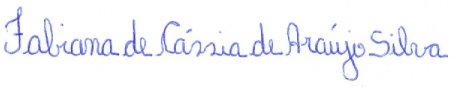 Fabiana de Cássia de Araújo Silva